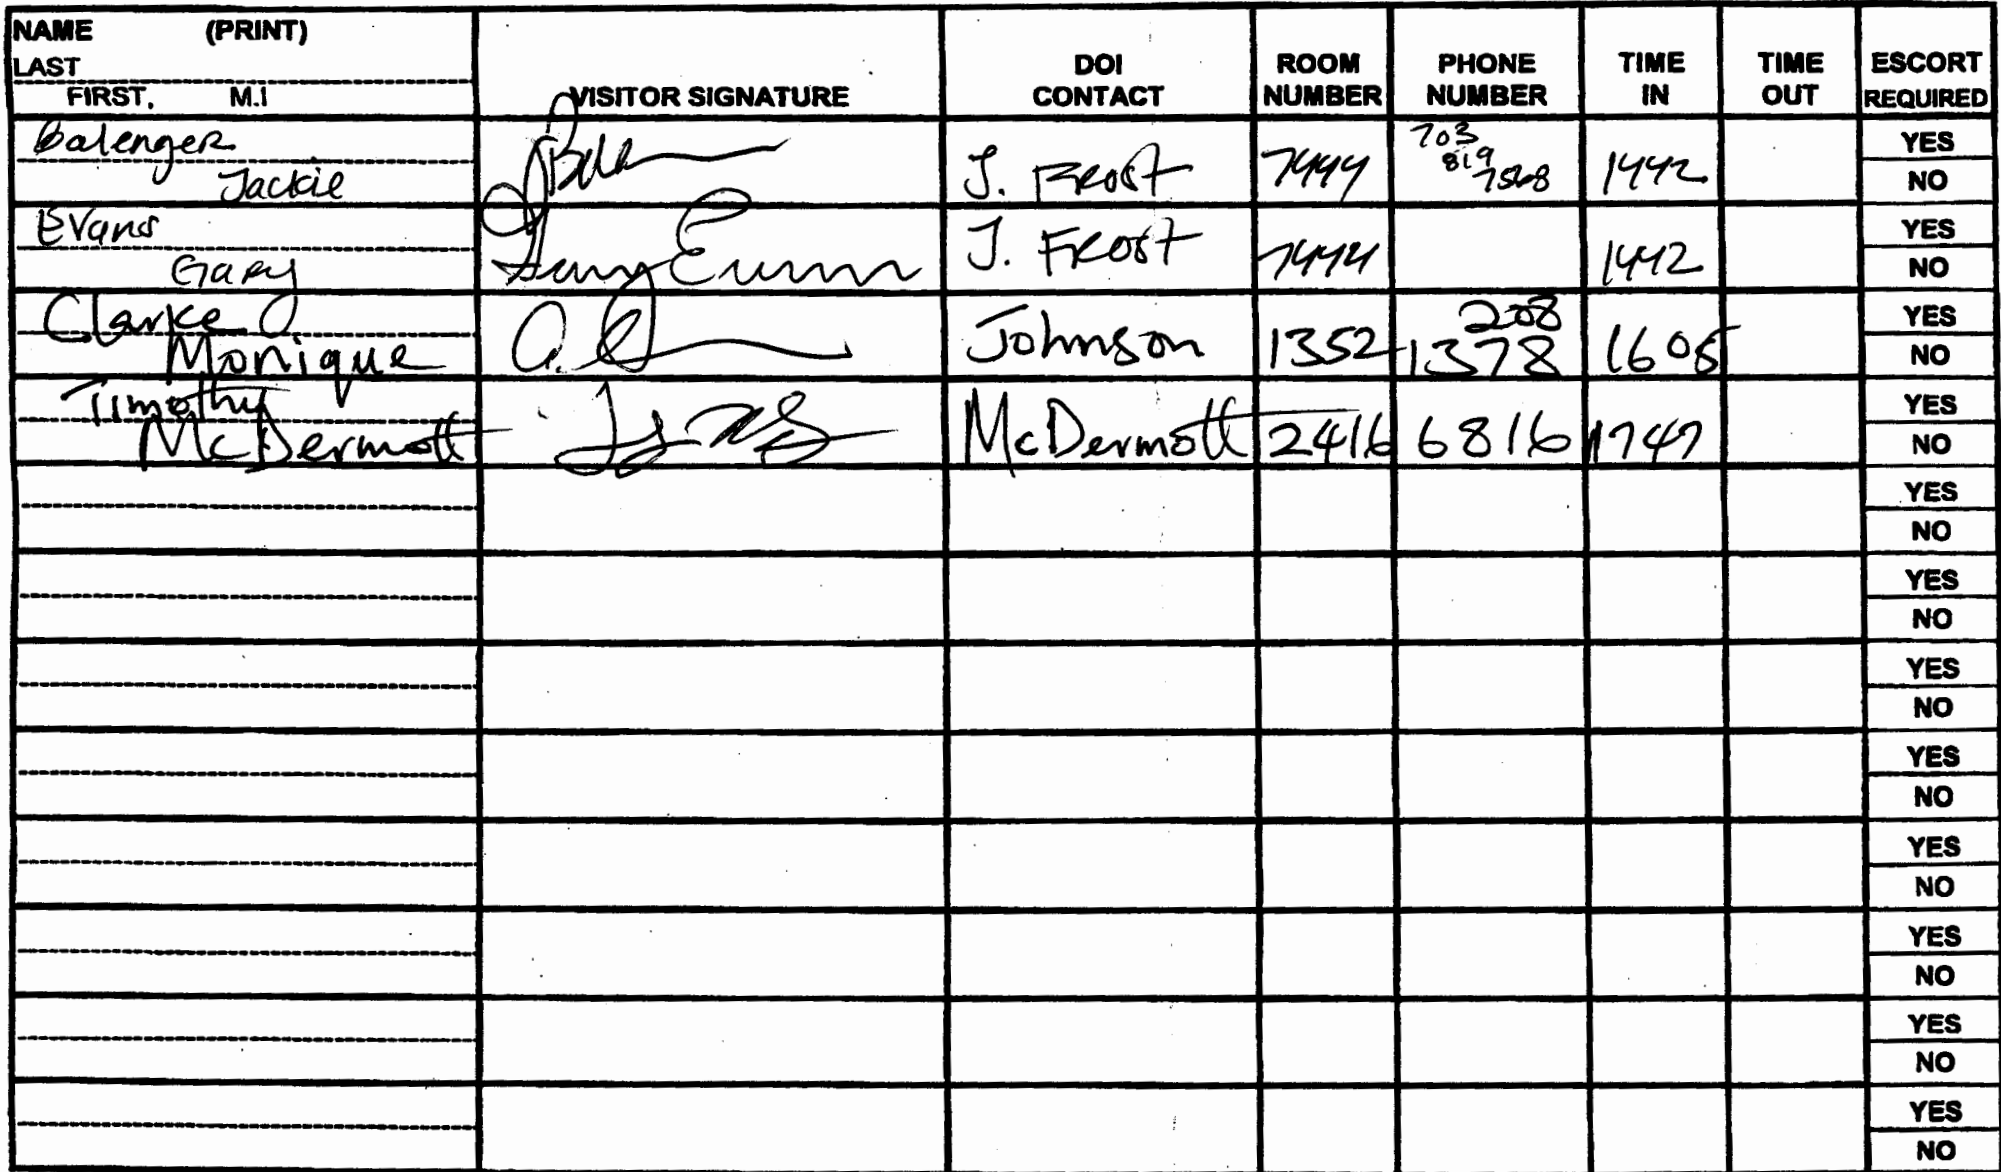 NAME (PRINT)
LAST
FIRST, M.I
VISITOR SIGNATURE
DOI CONTACT
ROOM NUMBER
PHONE NUMBER
TIME IN
TIME OUT
ESCORT REQUIRED
Balenger
Jackie
J. Frost
7444
703
819
7568
1442
YES
NO
Evans
Gary
Gary Evans
J. Frost
7444
1442
YES
NO
Clarke
Monique
Johnson
1352
208
1378
1605
YES
NO
Timothy
McDermott
McDermott
2416
6816
1747
YES
NO
YES
NO
YES
NO
YES
NO
YES
NO
YES
NO
YES
NO
YES
NO
YES
NO